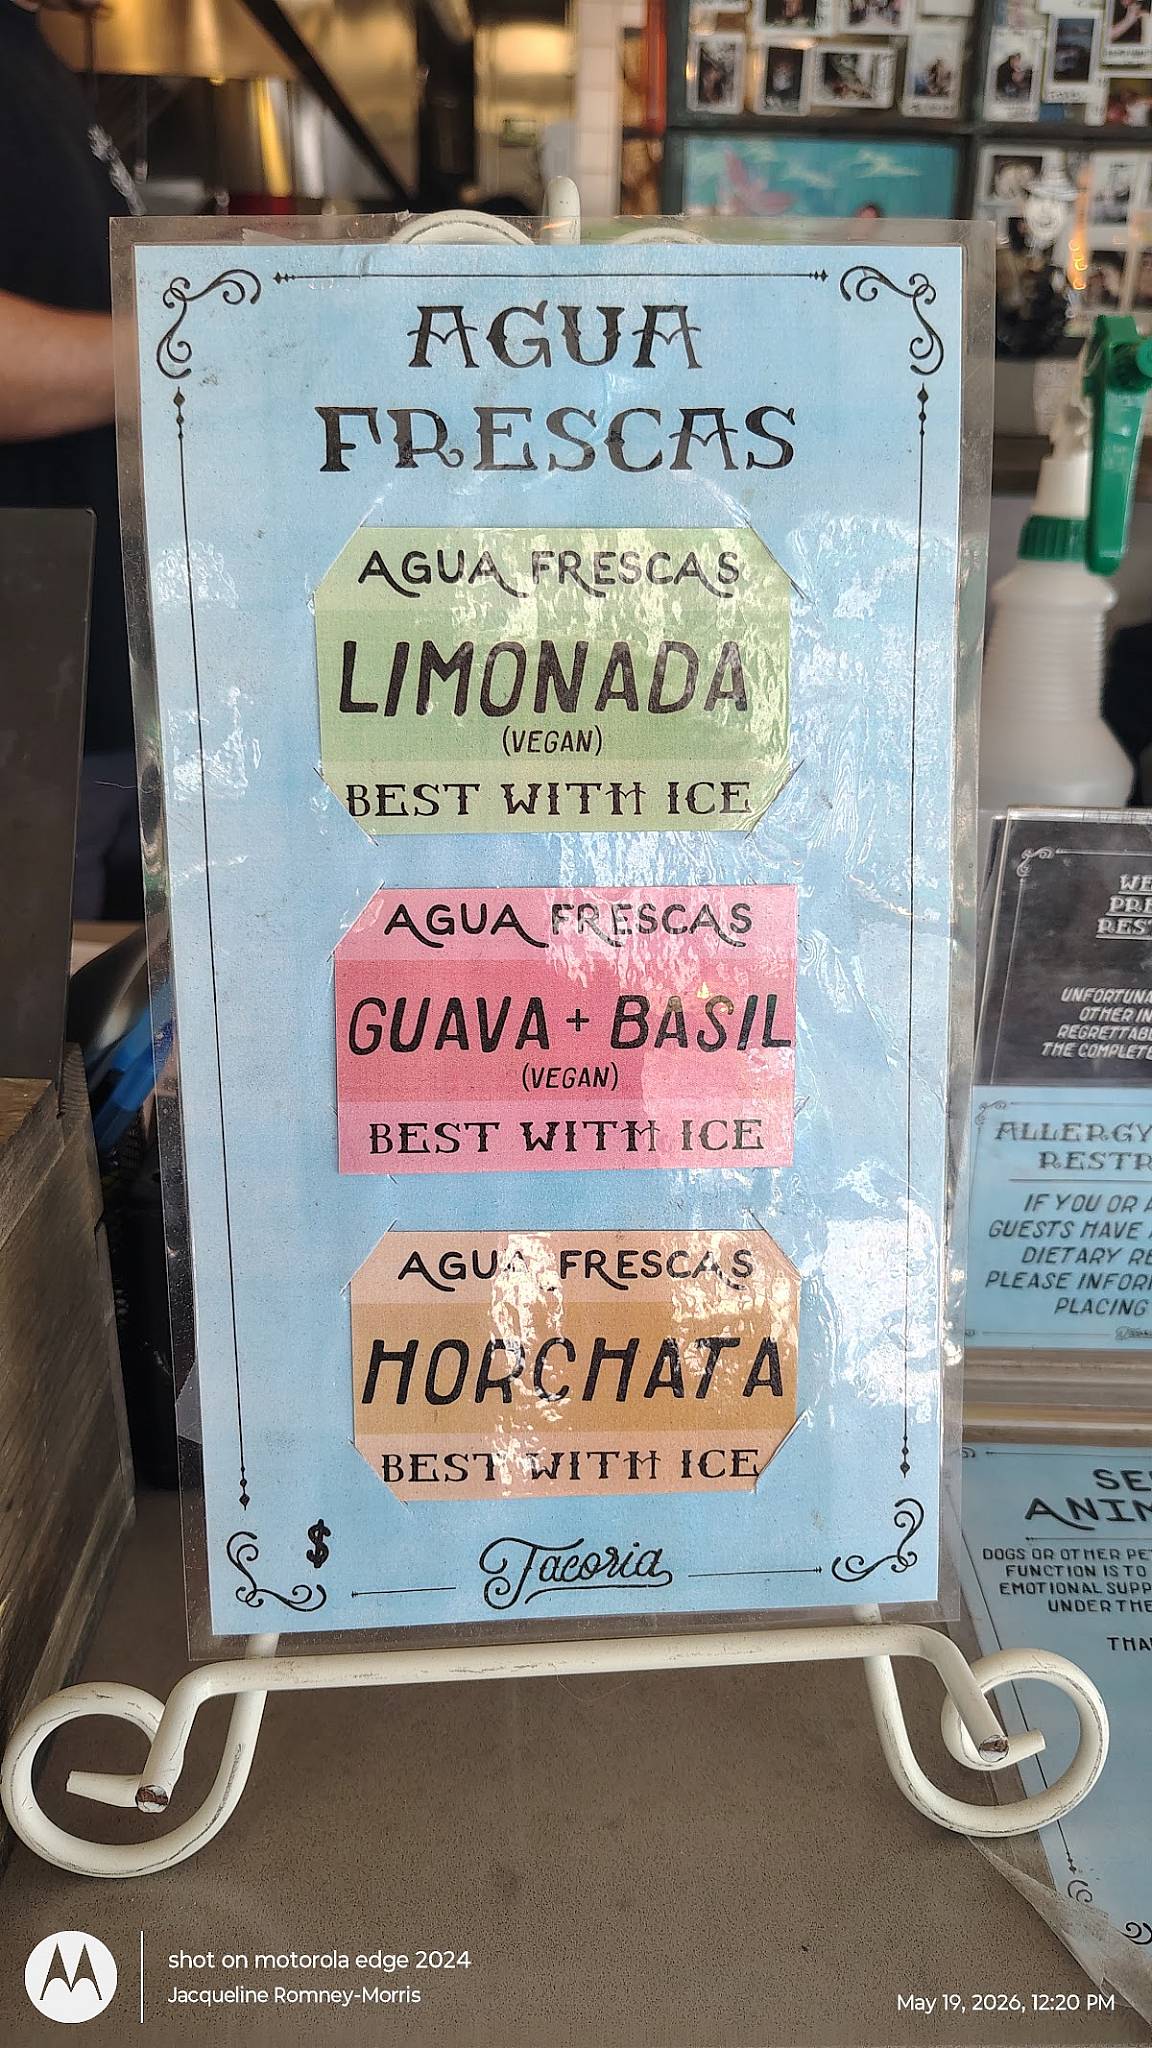 AGUA
FRESCAS
AGUA FRESCAS
LIMONADA
(VEGAN)
BEST WITH ICE
AGUA FRESCAS
GUAVA + BASIL
(VEGAN)
BEST WITH ICE
AGUA FRESCAS
HORCHATA
BEST WITH ICE
$
Tacoria
WE
PRE
REST
UNFORTUNA
OTHER IN
REGRETTAB
THE COMPLETE
ALLERGY
RESTR
IF YOU OR A
GUESTS HAVE
DIETARY RE
PLEASE INFOR
PLACING
SE
ANIM
DOGS OR OTHER PE
FUNCTION IS TO
EMOTIONAL SUPP
UNDER THE
THA
shot on motorola edge 2024
Jacqueline Romney-Morris
May 19, 2026, 12:20 PM